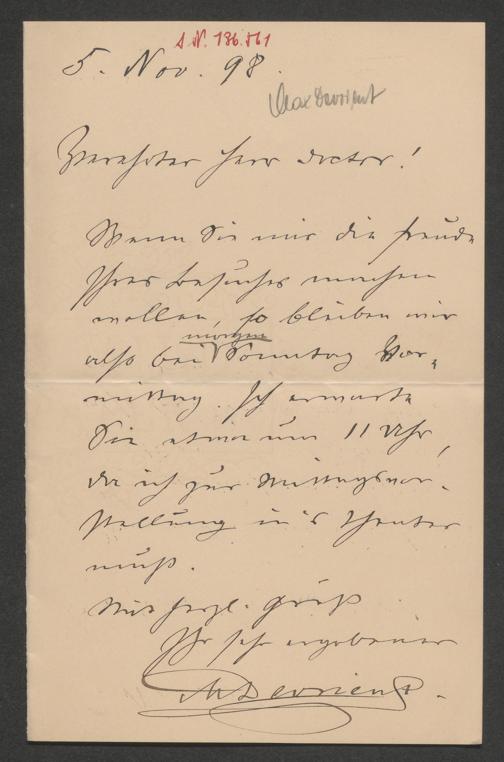 A. N. 136.561
5. Nov. 98.
Max Devrient
Verehrter Herr Doctor!
Wenn Sie mir die Freude
Ihres Besuches machen
wollen, so bleiben wir
morgen
also bei Sonntag Vor-
mittag. Ich erwarte
Sie etwa um 11 Uhr,
da ich zur Mittagsvor-
stellung in's Theater
muß.
Mit herzl. Gruß
Ihr sehr ergebener
M Devrient.